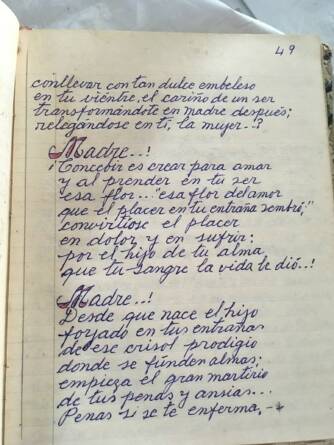 49
conllevar con tan dulce embeleso
en tu viéntre, el cariño de un ser
transformándote en madre después;
relegándose en ti, la mujer..?
Madre..!
¡Concebir es crear para amar
y al prender en tu ser
esa flor... esa flor del amor
que el placer en tu entraña sembró,"
convirtiose el placer
en dolor, y en sufrir:
por el hijo de tu alma
que tu sangre la vida le dió..!
Madre..!
Desde que nace el hijo
forjado en tus entrañas
de ese crisol prodigio
donde se funden almas;
empieza el gran martirio
de tus penas y ansias...
Penas si se te enferma,-+